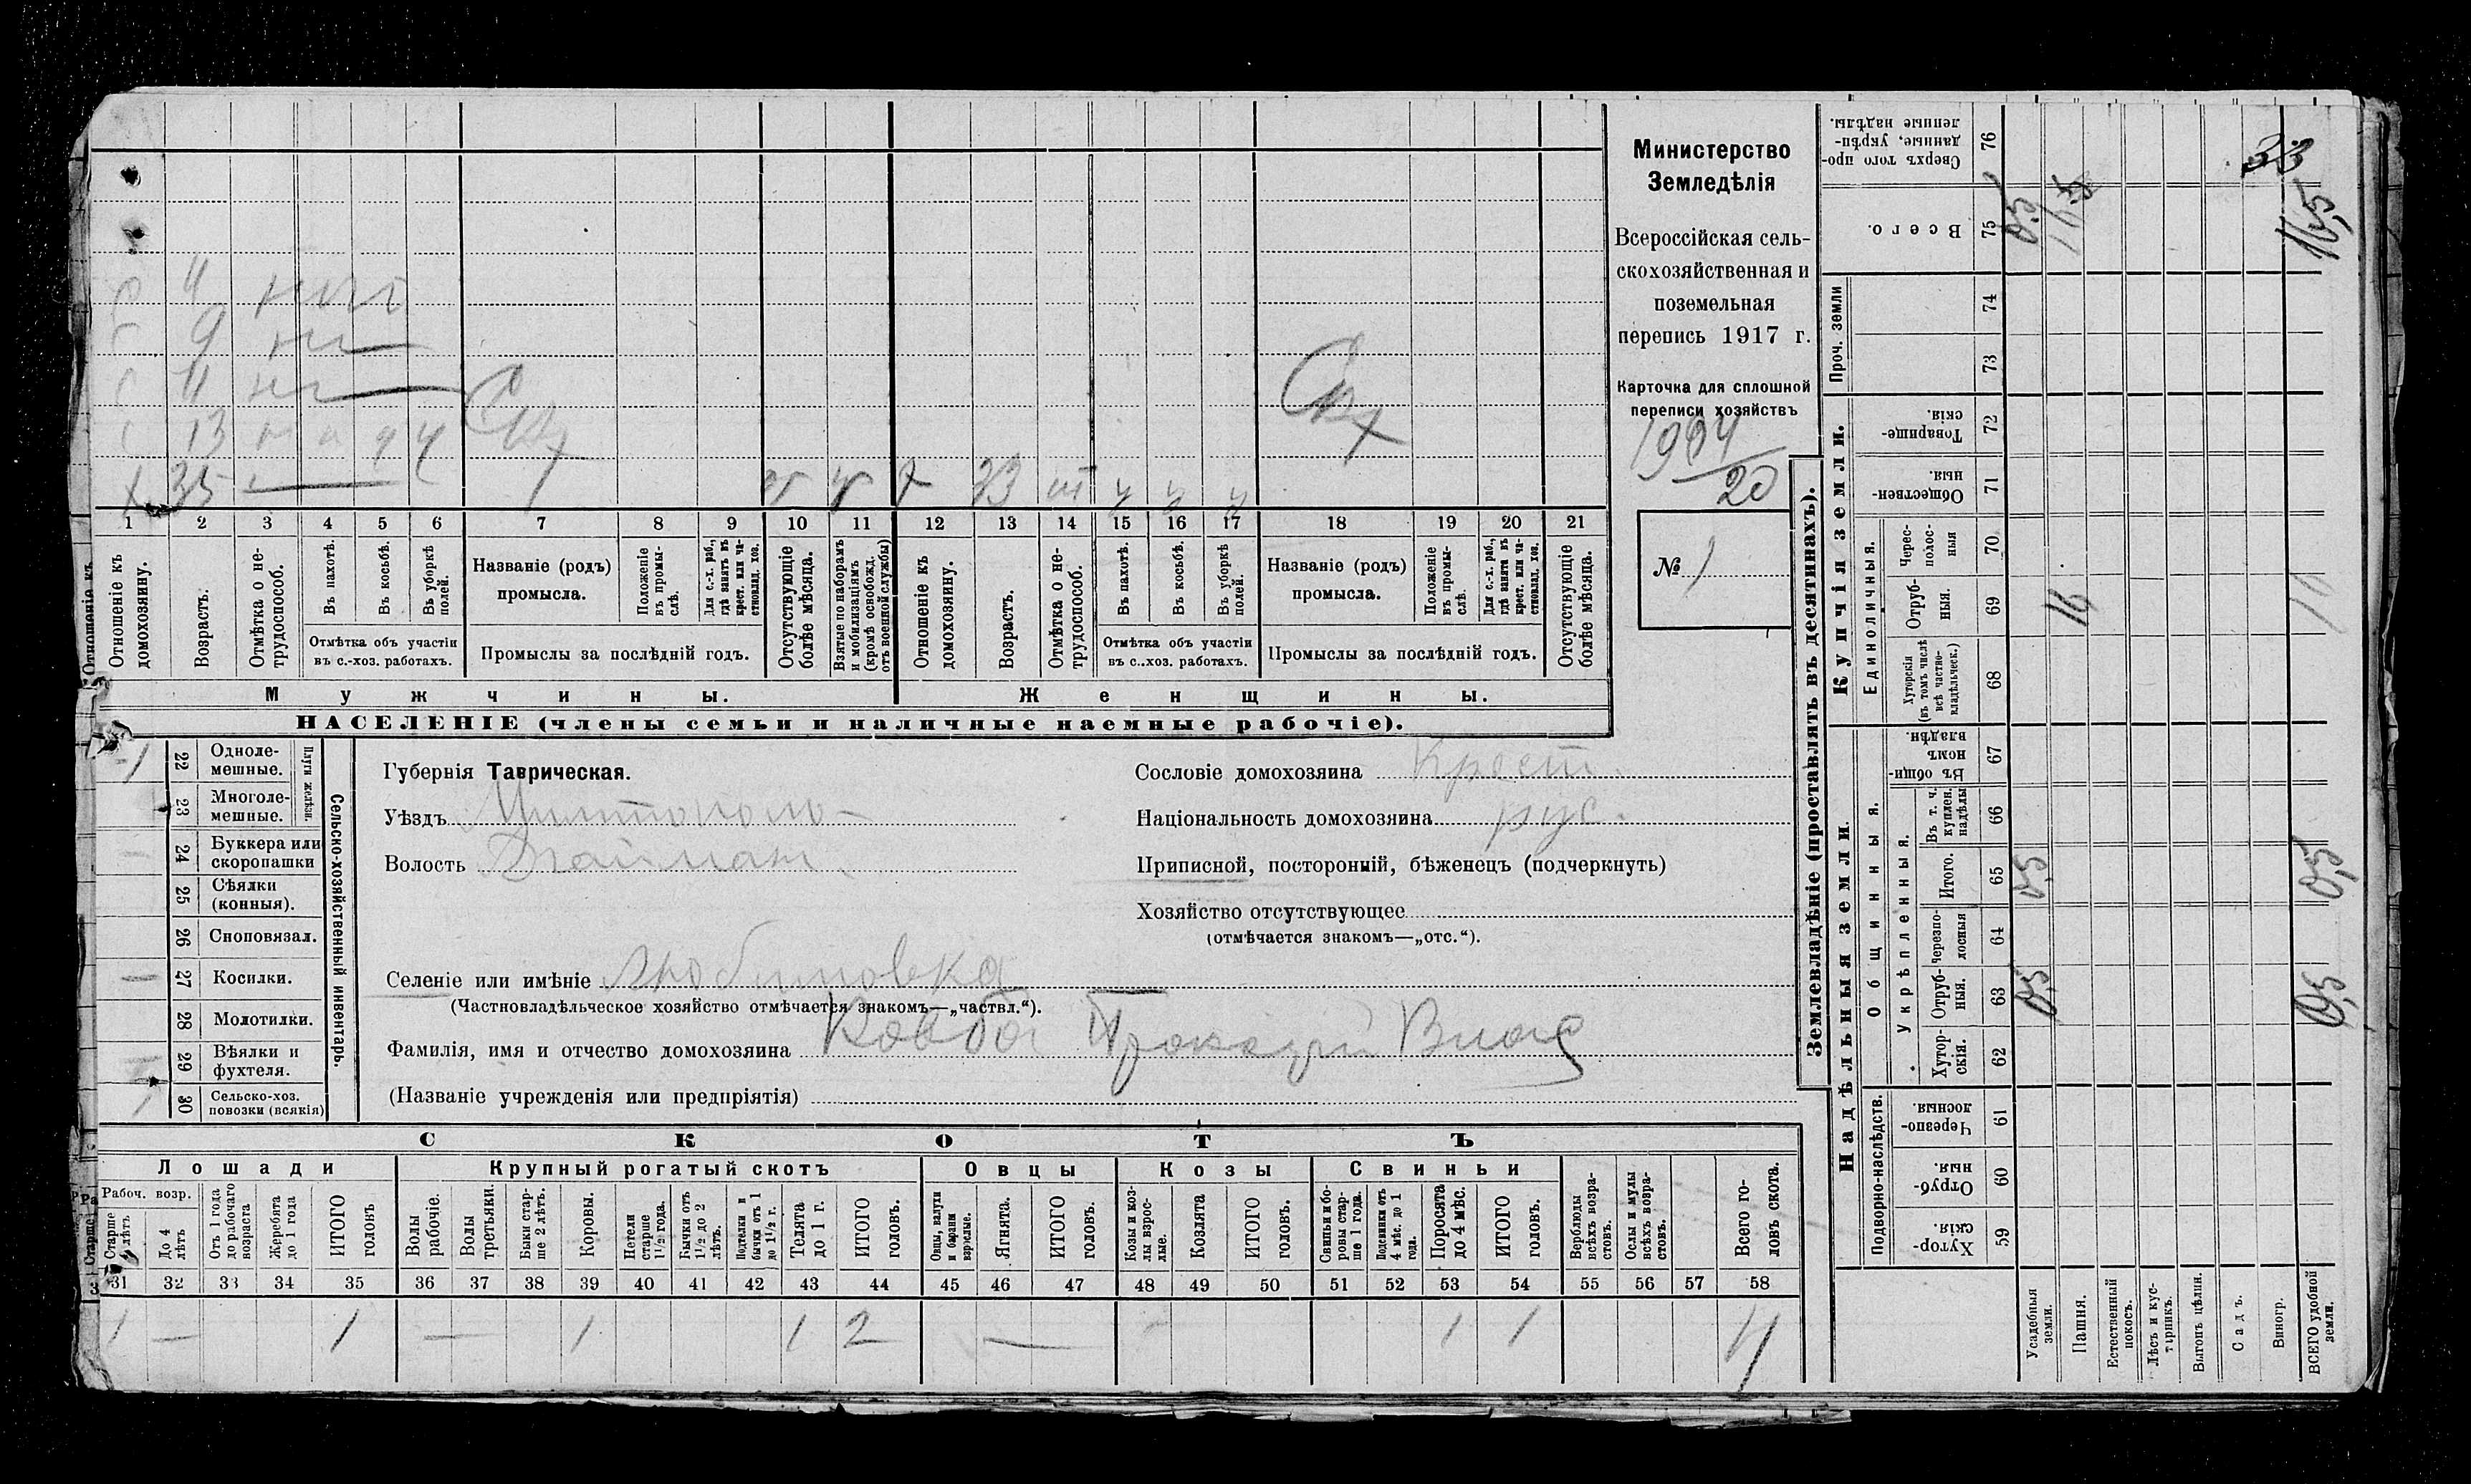 Министерство
Земледѣлія
Всероссійская сель-
скохозяйственная и
поземельная
перепись 1917 г.
Карточка для сплошной
переписи хозяйствъ
20
№ 1
х 35
13
11
9
33
1 2 3 4 5 6 7 8 9 10 11 12 13 14 15 16 17 18 19 20 21
Отношеніе къ домохозяину.
Возрастъ.
Отмѣтка о не-трудоспособ.
Въ пахотѣ.
Въ косьбѣ.
Въ уборкѣ полей.
Отмѣтка объ участіи
въ с.-хоз. работахъ.
Названіе (родъ)
промысла.
Положеніе въ промы-слѣ.
Для с.-х. раб., гдѣ занятъ въ крест. или ча-стновлад. хоз.
Промыслы за послѣдній годъ.
Отсутствующіе болѣе мѣсяца.
Взятые по наборамъ и мобилизаціямъ (кромѣ освобожд. отъ военной службы)
Отношеніе къ домохозяину.
Возрастъ.
Отмѣтка о не-трудоспособ.
Въ пахотѣ.
Въ косьбѣ.
Въ уборкѣ полей.
Отмѣтка объ участіи
въ с..хоз. работахъ.
Названіе (родъ)
промысла.
Положеніе въ промы-слѣ.
Для с.-х. раб., гдѣ занята въ крест. или ча-стновлад. хоз.
Промыслы за послѣдній годъ.
Отсутствующіе болѣе мѣсяца.
Мужчины.
Женщины.
НАСЕЛЕНІЕ (члены семьи и наличные наемные рабочіе).
Сельско-хозяйственный инвентарь.
Плуги желѣзн.
1 22 Одноле-мешные.
23 Многоле-мешные.
24 Буккера или скоропашки
25 Сѣялки (конныя).
26 Сноповязал.
— 27 Косилки.
28 Молотилки.
29 Вѣялки и фухтеля.
1 30 Сельско-хоз. повозки (всякія)
Губернія Таврическая.
Уѣздъ
Волость
Селеніе или имѣніе Любимовка
(Частновладѣльческое хозяйство отмѣчается знакомъ—„частвл.“).
Фамилія, имя и отчество домохозяина
(Названіе учрежденія или предпріятія)
Сословіе домохозяина Крест.
Національность домохозяина рус.
Приписной, посторонній, бѣженецъ (подчеркнуть)
Хозяйство отсутствующее
(отмѣчается знакомъ—„отс.“).
СКОТЪ
Лошади
Крупный рогатый скотъ
Овцы
Козы
Свиньи
Рабоч. возр.
Старше 4 лѣтъ
До 4 лѣтъ
Отъ 1 года до рабочаго возраста
Жеребята до 1 года
ИТОГО головъ
Волы рабочіе.
Волы третьяки.
Быки стар-ше 2 лѣтъ.
Коровы.
Нетели старше 1½ года.
Бычки отъ 1½ до 2 лѣтъ.
Подтелки и бычки отъ 1 до 1½ г.
Телята до 1 г.
ИТОГО головъ.
Овцы, валухи и бараны взрослые.
Ягнята.
ИТОГО головъ.
Козы и коз-лы взрос-лые.
Козлята
ИТОГО головъ.
Свиньи и бо-ровы стар-ше 1 года.
Подсвинки отъ 4 мѣс. до 1 года.
Поросята до 4 мѣс.
ИТОГО головъ.
Верблюды всѣхъ возра-стовъ.
Ослы и мулы всѣхъ возра-стовъ.
Всего го-ловъ скота.
31 32 33 34 35 36 37 38 39 40 41 42 43 44 45 46 47 48 49 50 51 52 53 54 55 56 57 58
1 — 1 — 1 1 2 — 1 1 4
Землевладѣніе (проставлять въ десятинахъ).
Надѣльныя земли.
Купчія земли.
Проч. земли
Подворно-наслѣдств.
Общинныя.
Укрѣпленныя.
Единоличныя.
76 Сверхъ того про-данные, укрѣп-ленные надѣлы.
75 Всего. 0,5 16,5
74
73
72 Товарище-скія.
71 Обществен-ныя
70 Черес-полос-ныя
69 Отруб-ныя. 16 16
68 Хуторскія (въ томъ числѣ всѣ частно-владѣльческ.)
67 Въ общин-номъ владѣн.
66 Въ т. ч. куплен. надѣлы
65 Итого. 0,5 0,5
64 Черезпо-лосныя
63 Отруб-ныя. 0,5 0,5
62 Хутор-скія.
61 Черезпо-лосныя.
60 Отруб-ныя.
59 Хутор-скія.
Усадебныя земли.
Пашня.
Естественный покосъ.
Лѣсъ и кус-тарникъ.
Выгонъ цѣлин.
Садъ.
Виногр.
ВСЕГО удобной земли.
33